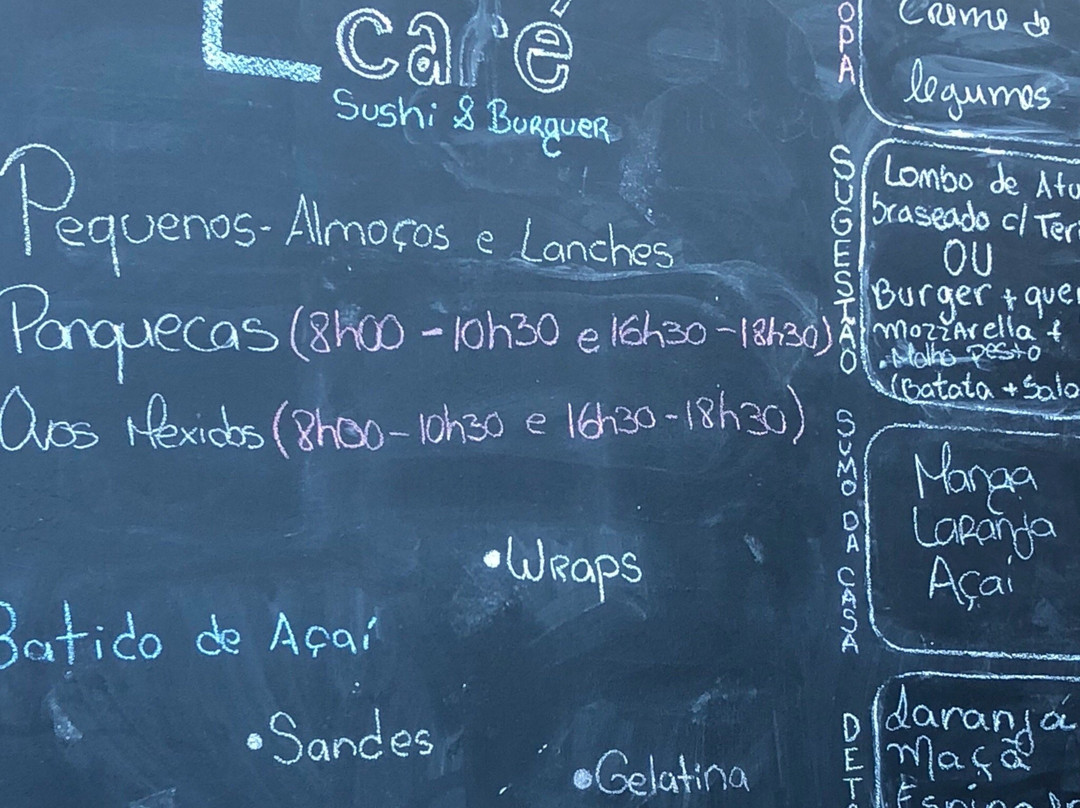 L café
Sushi & Burguer
Pequenos-Almoços e Lanches
Panquecas (8h00 - 10h30 e 16h30 - 18h30)
Ovos Mexidos (8h00 - 10h30 e 16h30 - 18h30)
• Wraps
Batido de Açaí
• Sandes
• Gelatina
OPA
Creme de
legumes
SUGESTÃO
Lombo de Atu
braseado c/ Ter
OU
Burger + que
mozzarella +
Molho pesto
(Batata + Sala
SUMO DA CASA
Manga
Laranja
Açaí
DET
Laranja
Maçã